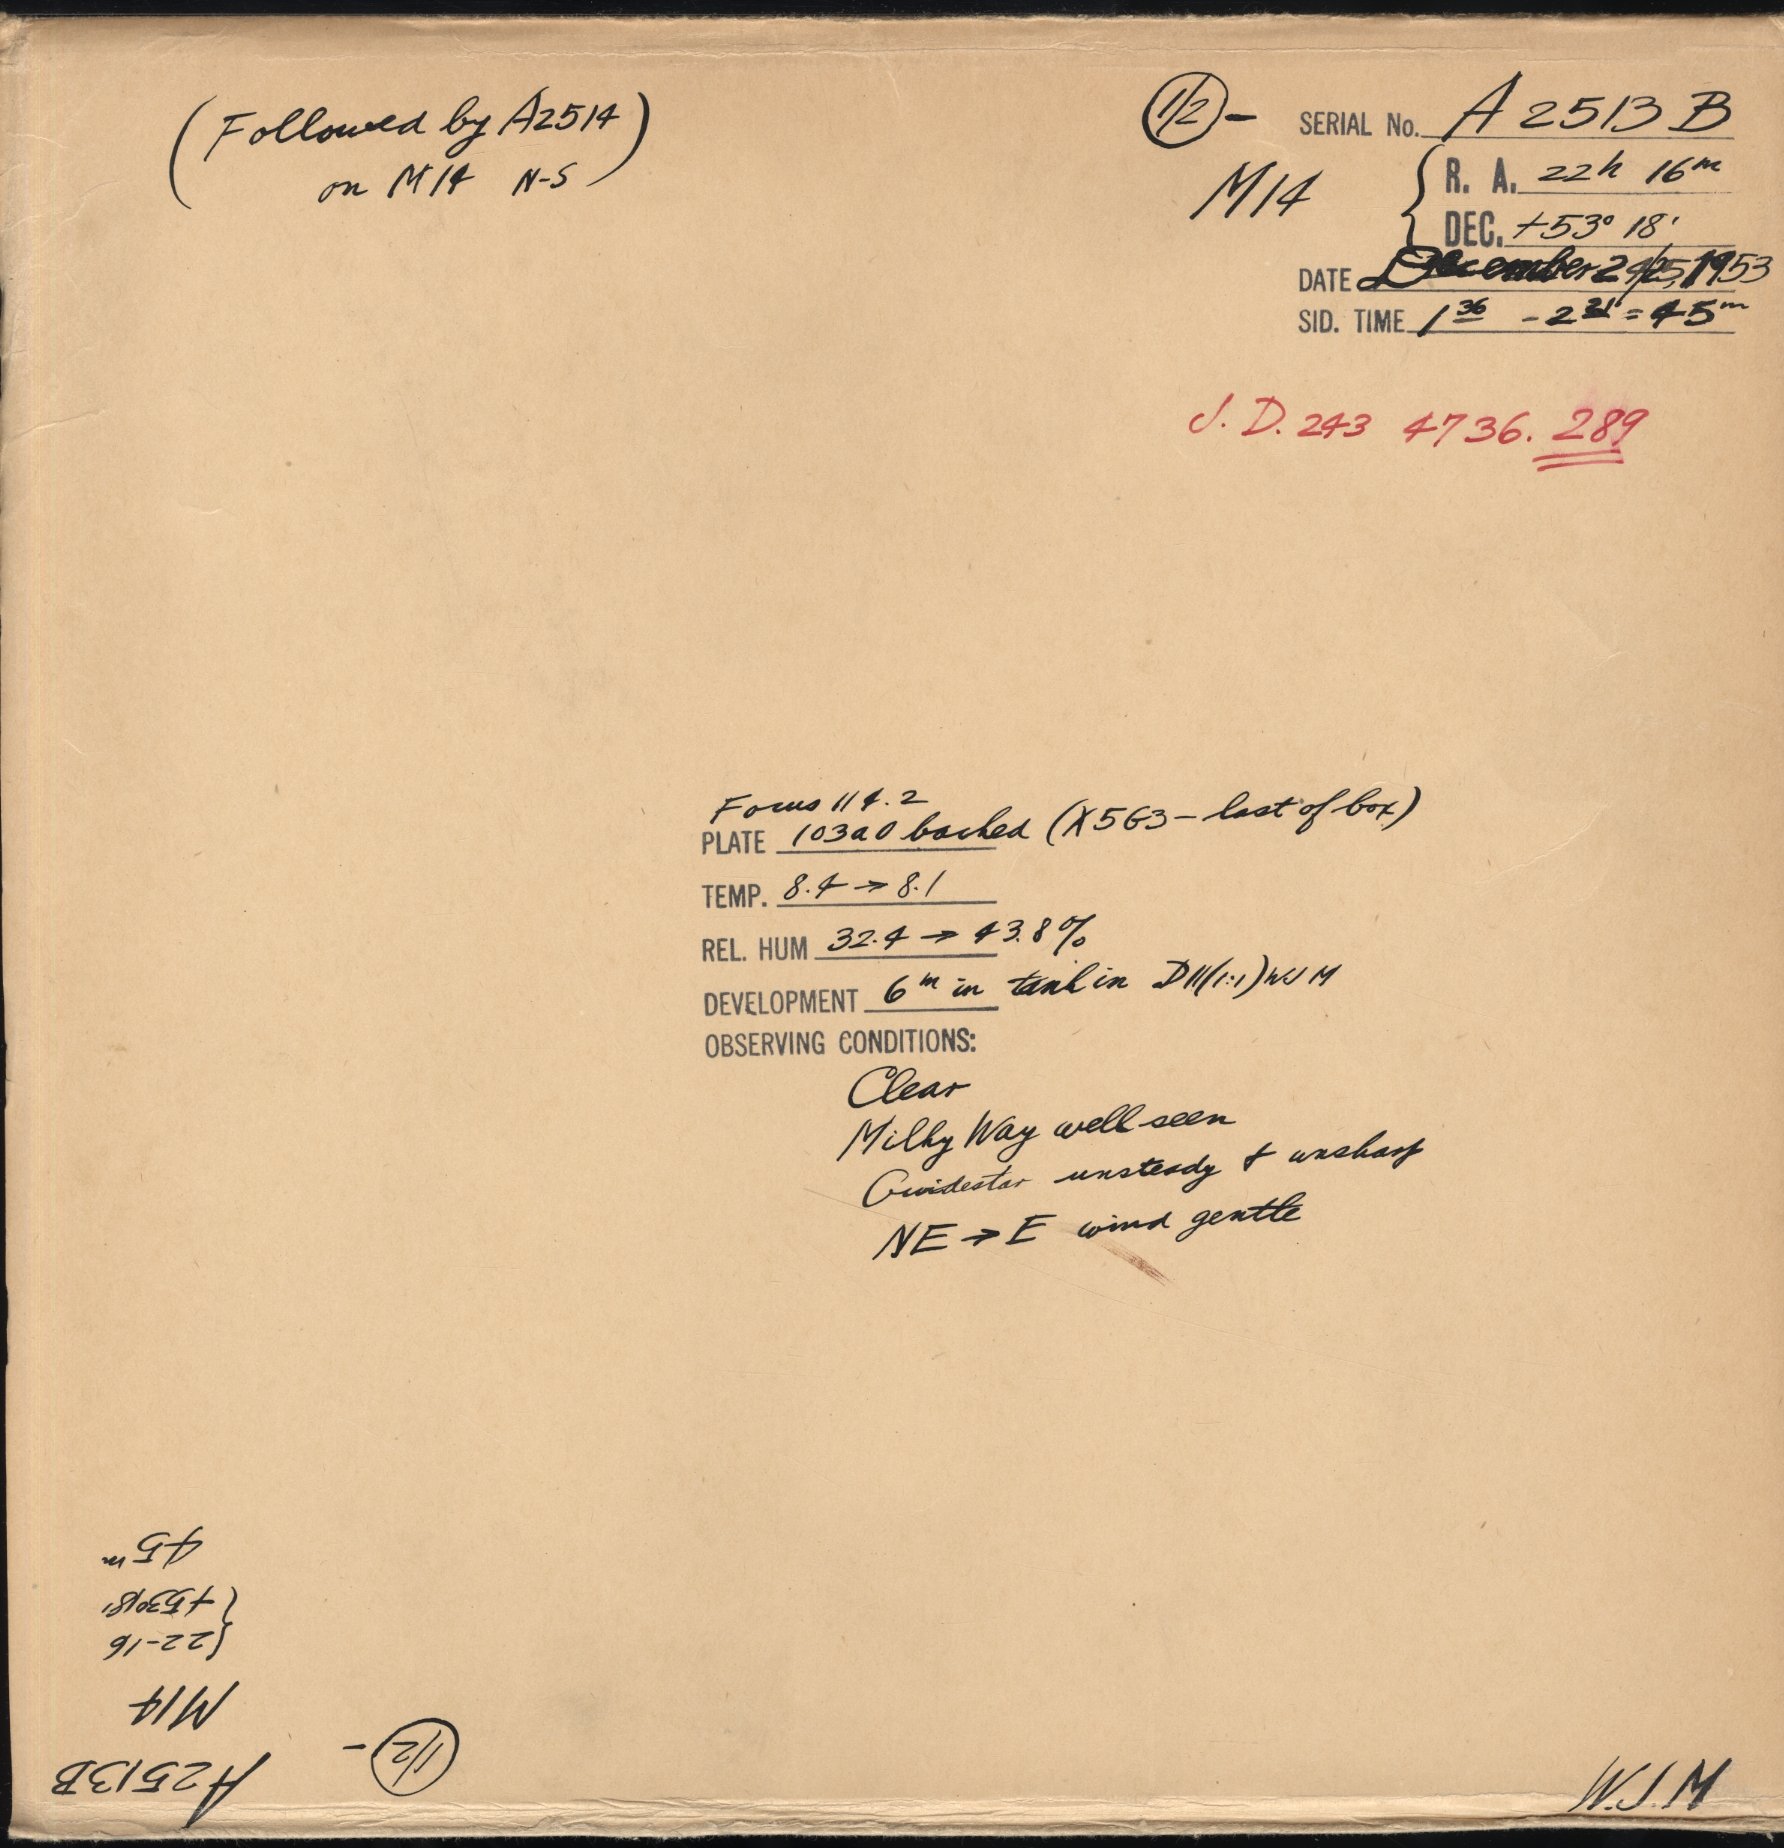 (Followed by A2514
on M14 N-S)
1/2 - SERIAL No. A 2513 B
M14
R. A. 22h 16m
DEC. +53° 18'
DATE December 24/25, 1953
SID. TIME 1 36 - 2 21 = 45m
J. D. 243 4736. 289
Focus 114.2
PLATE 103a0 backed (X5G3 - last of box)
TEMP. 8.4 → 8.1
REL. HUM 32.4 → 43.8%
DEVELOPMENT 6m in tank in D11(1:1) WJM
OBSERVING CONDITIONS:
Clear
Milky Way well seen
Guidestar unsteady & unsharp
NE → E wind gentle
W.J.M
1/2 -
A2513B
M14
{22-16
{+53°18'
45m